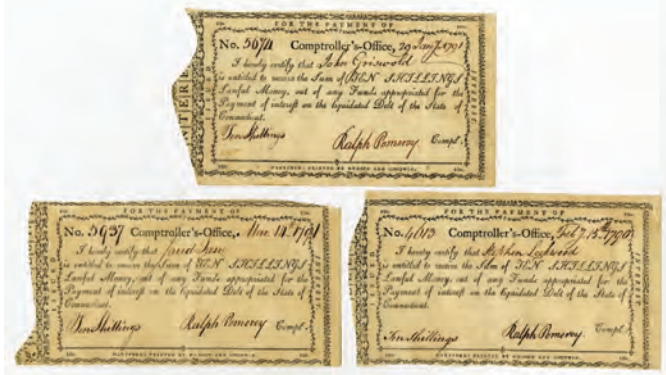 FOR THE PAYMENT OF
No. 5674 Comptroller's-Office, 29 Jany 1791
I hereby certify that John Griswold
is entitled to receive the Sum of TEN SHILLINGS
Lawful Money, out of any Funds appropriated for the
Payment of interest on the liquidated Debt of the State of
Connecticut.
Ten Shillings Ralph Pomeroy Compt.
HARTFORD: PRINTED BY HUDSON AND GOODWIN.
ISSUED
INTEREST
FOR THE PAYMENT OF
No. 5937 Comptroller's-Office, Mar. 14th 1791
I hereby certify that
is entitled to receive the Sum of TEN SHILLINGS
Lawful Money, out of any Funds appropriated for the
Payment of interest on the liquidated Debt of the State of
Connecticut.
Ten Shillings Ralph Pomeroy Compt.
HARTFORD: PRINTED BY HUDSON AND GOODWIN.
ISSUED
INTEREST
FOR THE PAYMENT OF
No. 4613 Comptroller's-Office, 1790
I hereby certify that Stephen Lockwood
is entitled to receive the Sum of TEN SHILLINGS
Lawful Money, out of any Funds appropriated for the
Payment of interest on the liquidated Debt of the State of
Connecticut.
Ten Shillings Ralph Pomeroy Compt.
HARTFORD: PRINTED BY HUDSON AND GOODWIN.
ISSUED
INTEREST